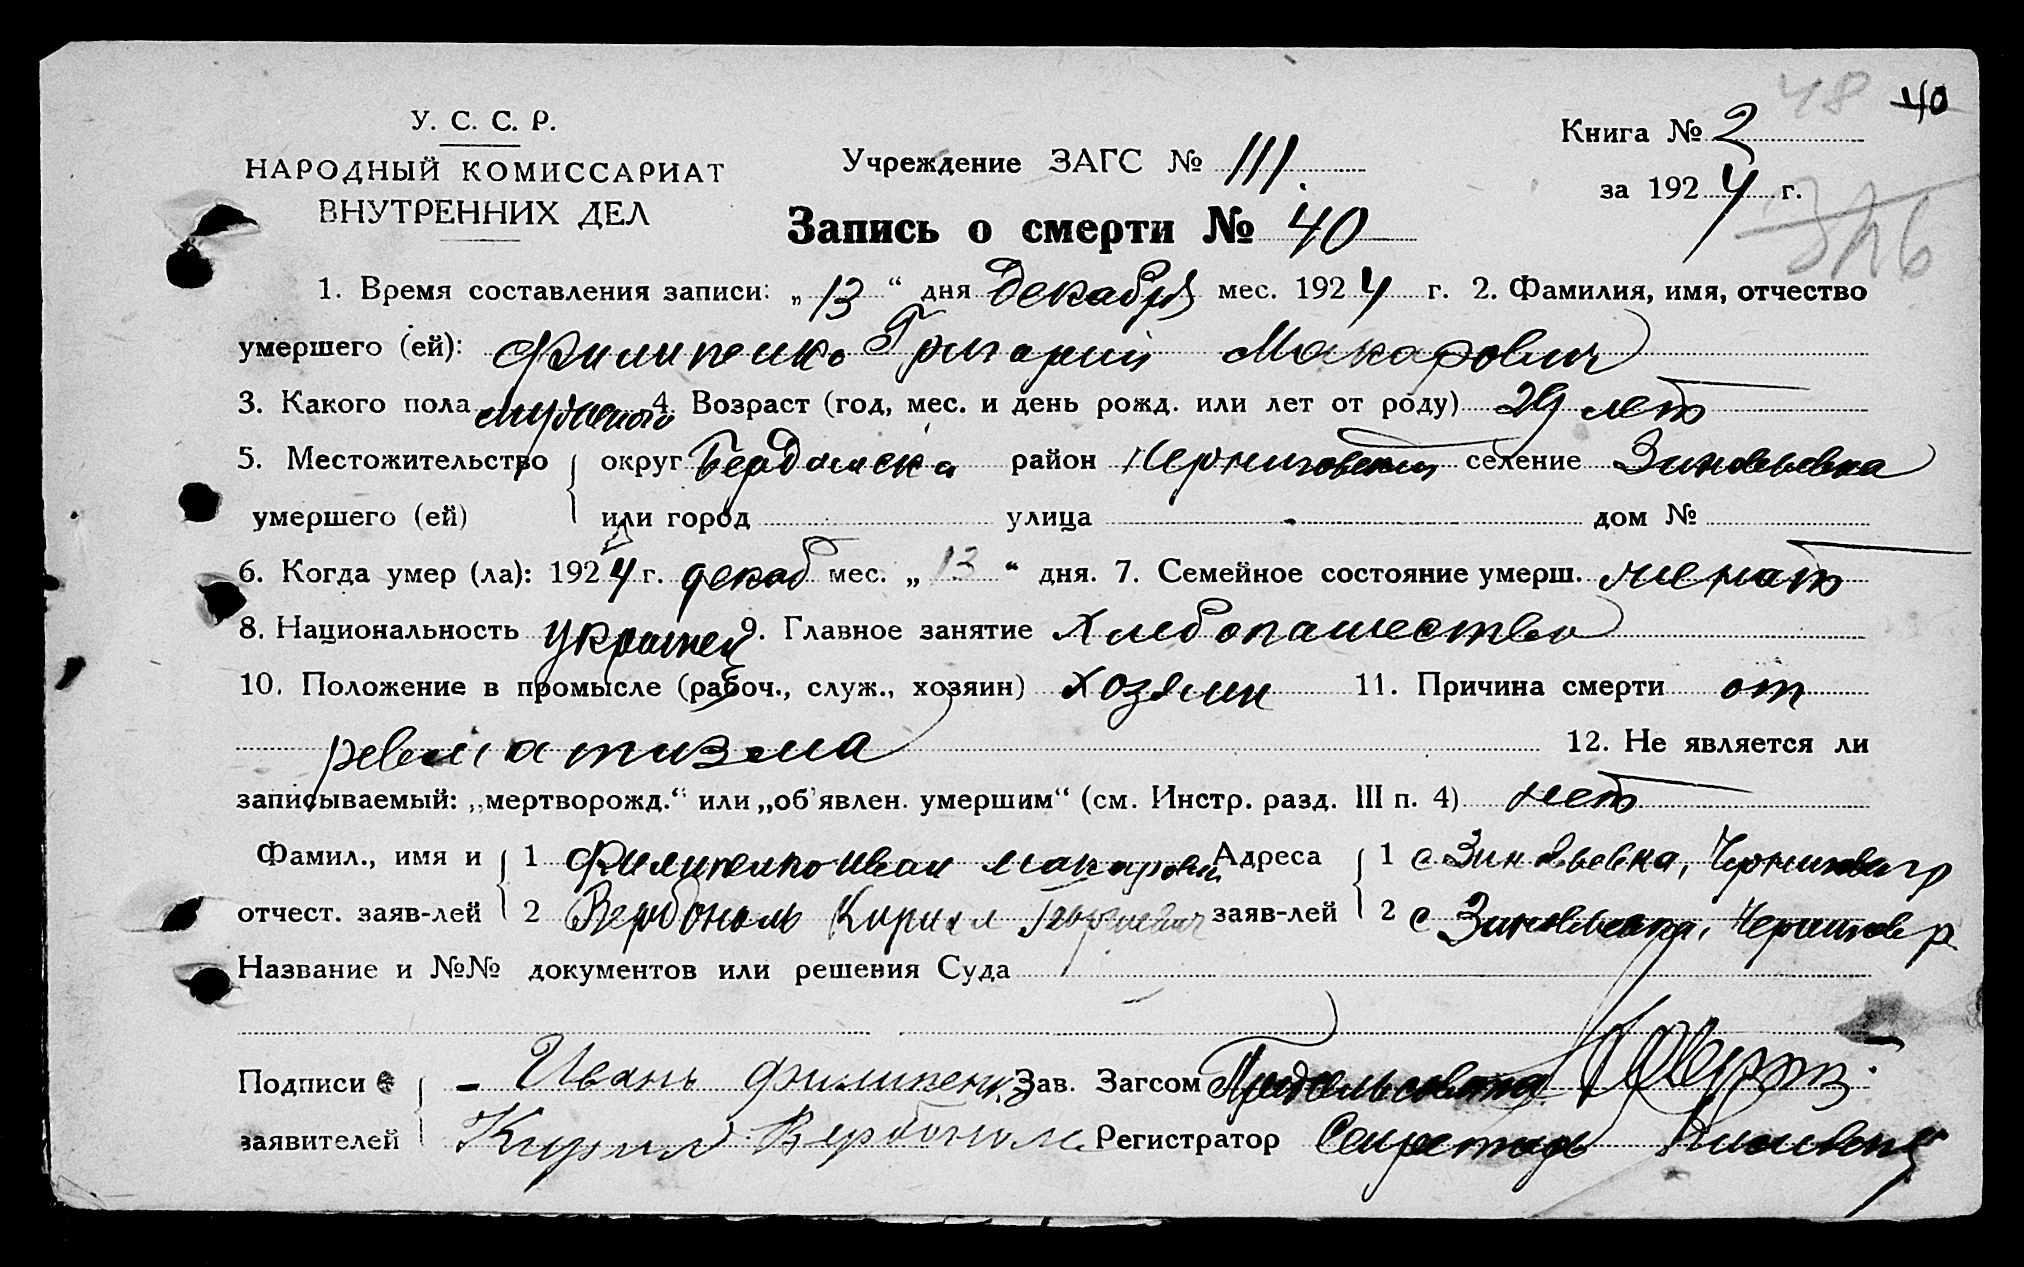 48 40
У. С. С. Р.
НАРОДНЫЙ КОМИССАРИАТ
ВНУТРЕННИХ ДЕЛ
Учреждение ЗАГС № 111.
Книга № 2
за 1924 г.
326
Запись о смерти № 40
1. Время составления записи: „13“ дня декабря мес. 1924 г. 2. Фамилия, имя, отчество
умершего (ей): Филипенко Григорий Макарович
3. Какого пола мужского 4. Возраст (год, мес. и день рожд. или лет от роду) 29 лет
5. Местожительство округ район Черниговский селение Зиновьевка
умершего (ей) или город улица дом №
6. Когда умер (ла): 1924 г. декаб мес. „13“ дня. 7. Семейное состояние умерш. женат
8. Национальность украинец 9. Главное занятие Хлебопашество
10. Положение в промысле (рабоч., служ., хозяин) хозяин 11. Причина смерти от
ревматизма 12. Не является ли
записываемый: „мертворожд.“ или „об'явлен. умершим“ (см. Инстр. разд. III п. 4) нет
Фамил., имя и 1 Филипенко Иван Макарович Адреса 1 с Зиновьевка, р
отчест. заяв-лей 2 Кирилл заяв-лей 2 с Чернигов р
Название и №№ документов или решения Суда
Подписи Иванъ Филипенко Зав. Загсом
заявителей Кирилл Регистратор Секретарь